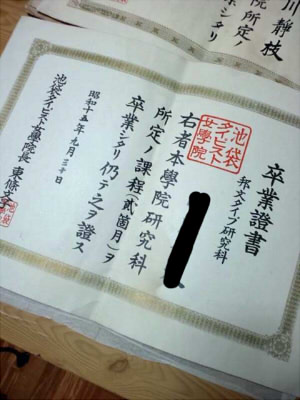 卒業證書
邦文タイプ研究科
右者本學院研究科
所定ノ課程(貳箇月)ヲ
卒業シタリ仍テ之ヲ證ス
昭和十五年九月三十日
池袋タイピスト女學院長
池袋
タイピスト
女學院
川靜枝
院所定ノ
シタリ